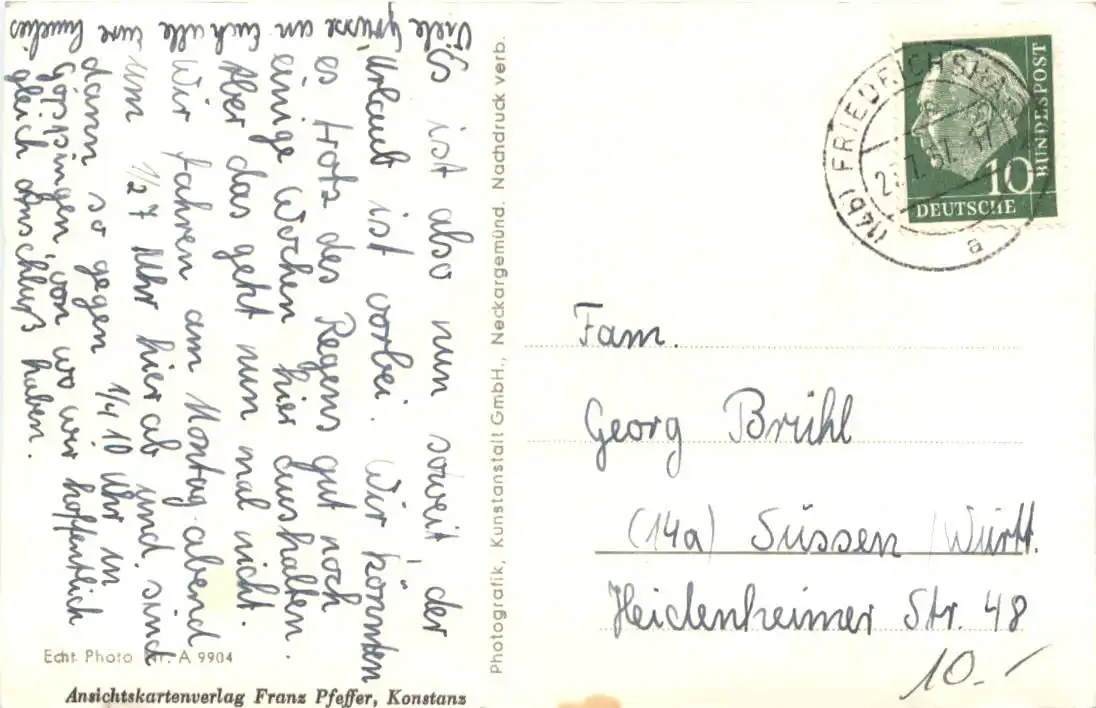 Es ist also nun soweit, der
Urlaub ist vorbei. Wir könnten
es trotz des Regens gut noch
einige Wochen hier aushalten.
Aber das geht nun mal nicht.
Wir fahren am Montag abend
um 1/27 Uhr hier ab und sind
dann so gegen 1/4 10 Uhr in
Göppingen, von wo wir hoffentlich
gleich Anschluß haben.
Viele Grüsse an Euch alle Eure
Photografik, Kunstanstalt GmbH., Neckargemünd. Nachdruck verb.
Echt Photo Nr. A 9904
Ansichtskartenverlag Franz Pfeffer, Konstanz
(14b) FRIEDRICHSHA
7.57.-17
a
10
DEUTSCHE
BUNDESPOST
Fam.
Georg Brühl
(14a) Süssen /Württ.
Heidenheimer Str. 48
10.-